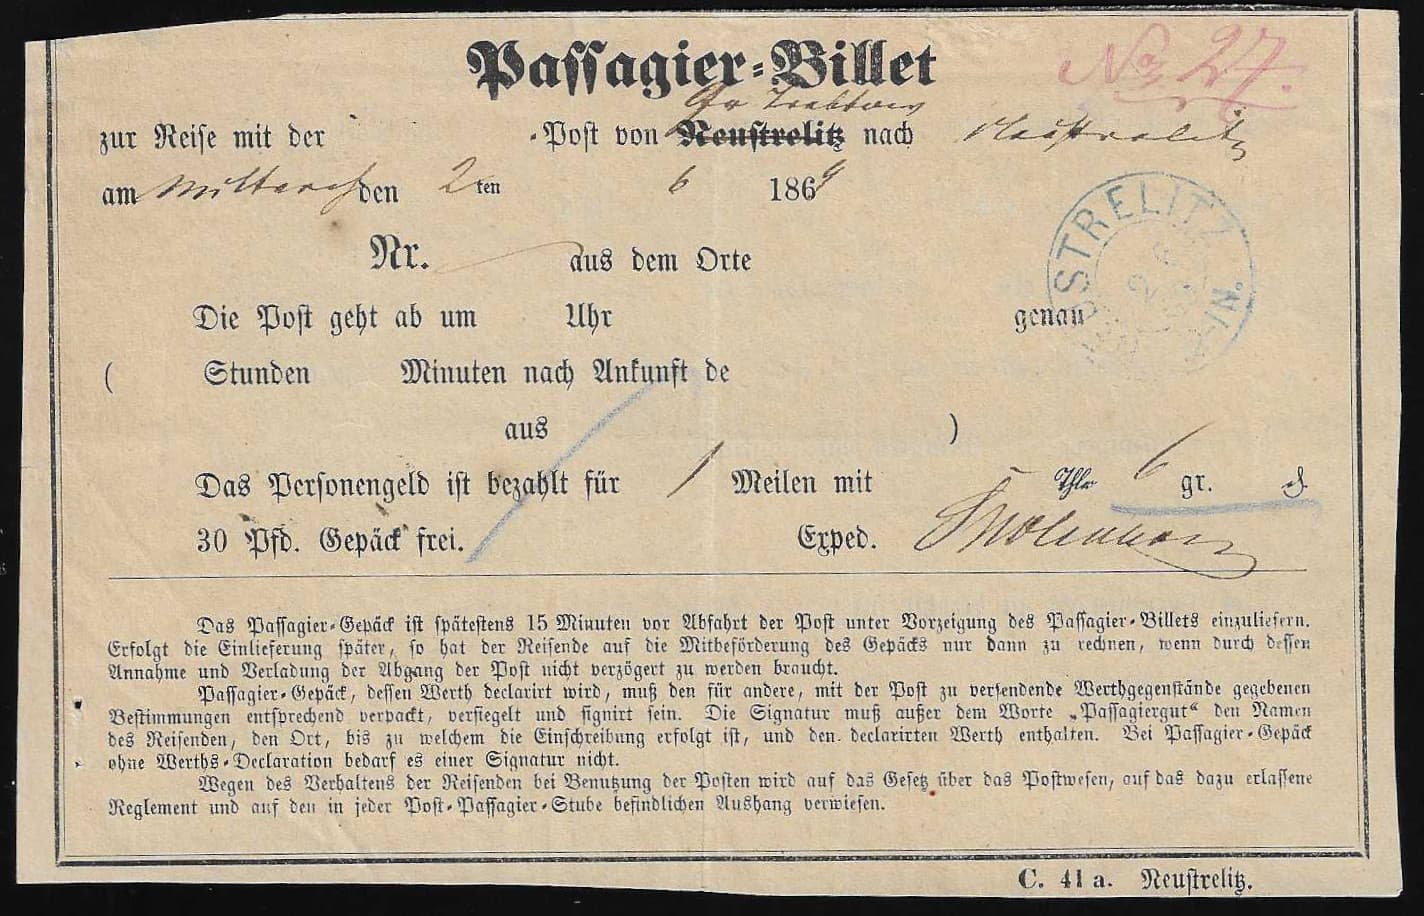 Passagier-Billet
No 27.
Gr Trebbow
zur Reise mit der -Post von Neustrelitz nach Neustrelitz
am Mittwoch den 2ten 6 1869
Nr. aus dem Orte
NEUSTRELITZ
2 6
Die Post geht ab um Uhr genau
( Stunden Minuten nach Ankunft de
aus )
Das Personengeld ist bezahlt für 1 Meilen mit – Thlr 6 gr. ₰
30 Pfd. Gepäck frei. Exped.
Das Passagier-Gepäck ist spätestens 15 Minuten vor Abfahrt der Post unter Vorzeigung des Passagier-Billets einzuliefern.
Erfolgt die Einlieferung später, so hat der Reisende auf die Mitbeförderung des Gepäcks nur dann zu rechnen, wenn durch dessen
Annahme und Verladung der Abgang der Post nicht verzögert zu werden braucht.
Passagier-Gepäck, dessen Werth declarirt wird, muß den für andere, mit der Post zu versendende Werthgegenstände gegebenen
Bestimmungen entsprechend verpackt, versiegelt und signirt sein. Die Signatur muß außer dem Worte „Passagiergut“ den Namen
des Reisenden, den Ort, bis zu welchem die Einschreibung erfolgt ist, und den declarirten Werth enthalten. Bei Passagier-Gepäck
ohne Werths-Declaration bedarf es einer Signatur nicht.
Wegen des Verhaltens der Reisenden bei Benutzung der Posten wird auf das Gesetz über das Postwesen, auf das dazu erlassene
Reglement und auf den in jeder Post-Passagier-Stube befindlichen Aushang verwiesen.
C. 41 a. Neustrelitz.